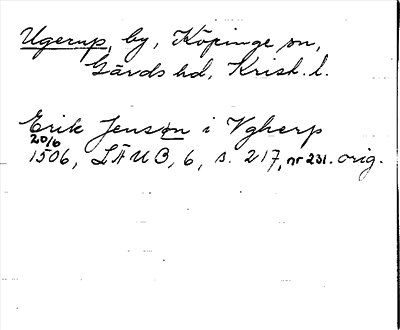 Ugerup, by, Köpinge sn,
Gärds hd, Krist. l.
Erik Jenson i Vgherp
20/6
1506, LÄUB, 6, s. 217, nr 231. orig.